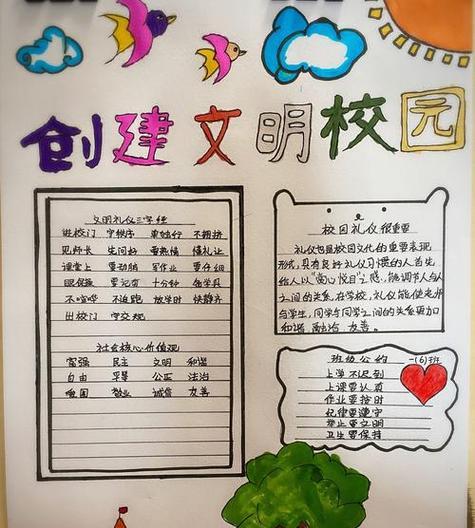 创建文明校园
文明礼仪三字经
进校门 守秩序 单独行 不拥挤
见师长 生问好 要热情 懂礼让
课堂上 要动脑 写作业 要仔细
眼保操 要记牢 十分钟 健
不喧哗 不追跑 放学时 快静齐
出校门 守交规
社会核心价值观
富强 民主 文明 和谐
自由 平等 公正 法治
爱国 敬业 诚信 友善
校园礼仪很重要
礼仪也是校园文化的重要表现
形式,具有良好礼仪习惯的人首先
给人以"赏心悦目"之感,能调节人与人
之间的关系,在学校,礼仪能使老师
与学生,同学与同学之间的关系更加
和谐 融洽 友善。
班级公约 一(6)班
上学不迟到
上课要认真
作业要按时
纪律要遵守
举止要文明
卫生要保持